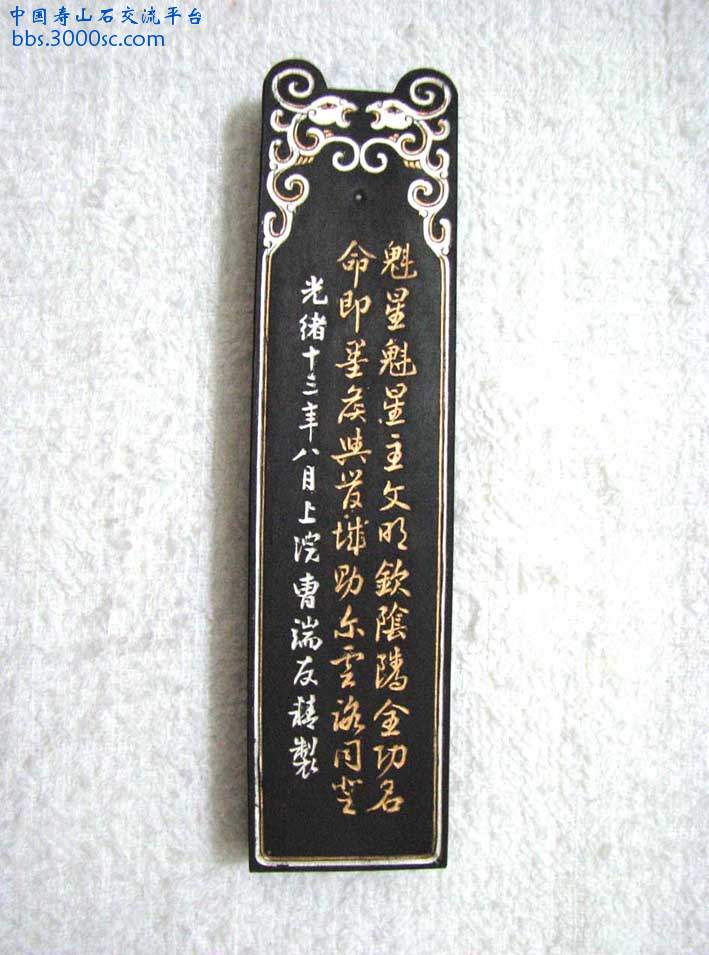 中国寿山石交流平台
bbs.3000sc.com
魁星魁星主文明欽陰隲全功名
命即墨侯與管城助尔雲路同登
光緒十三年八月上浣曹端友精製